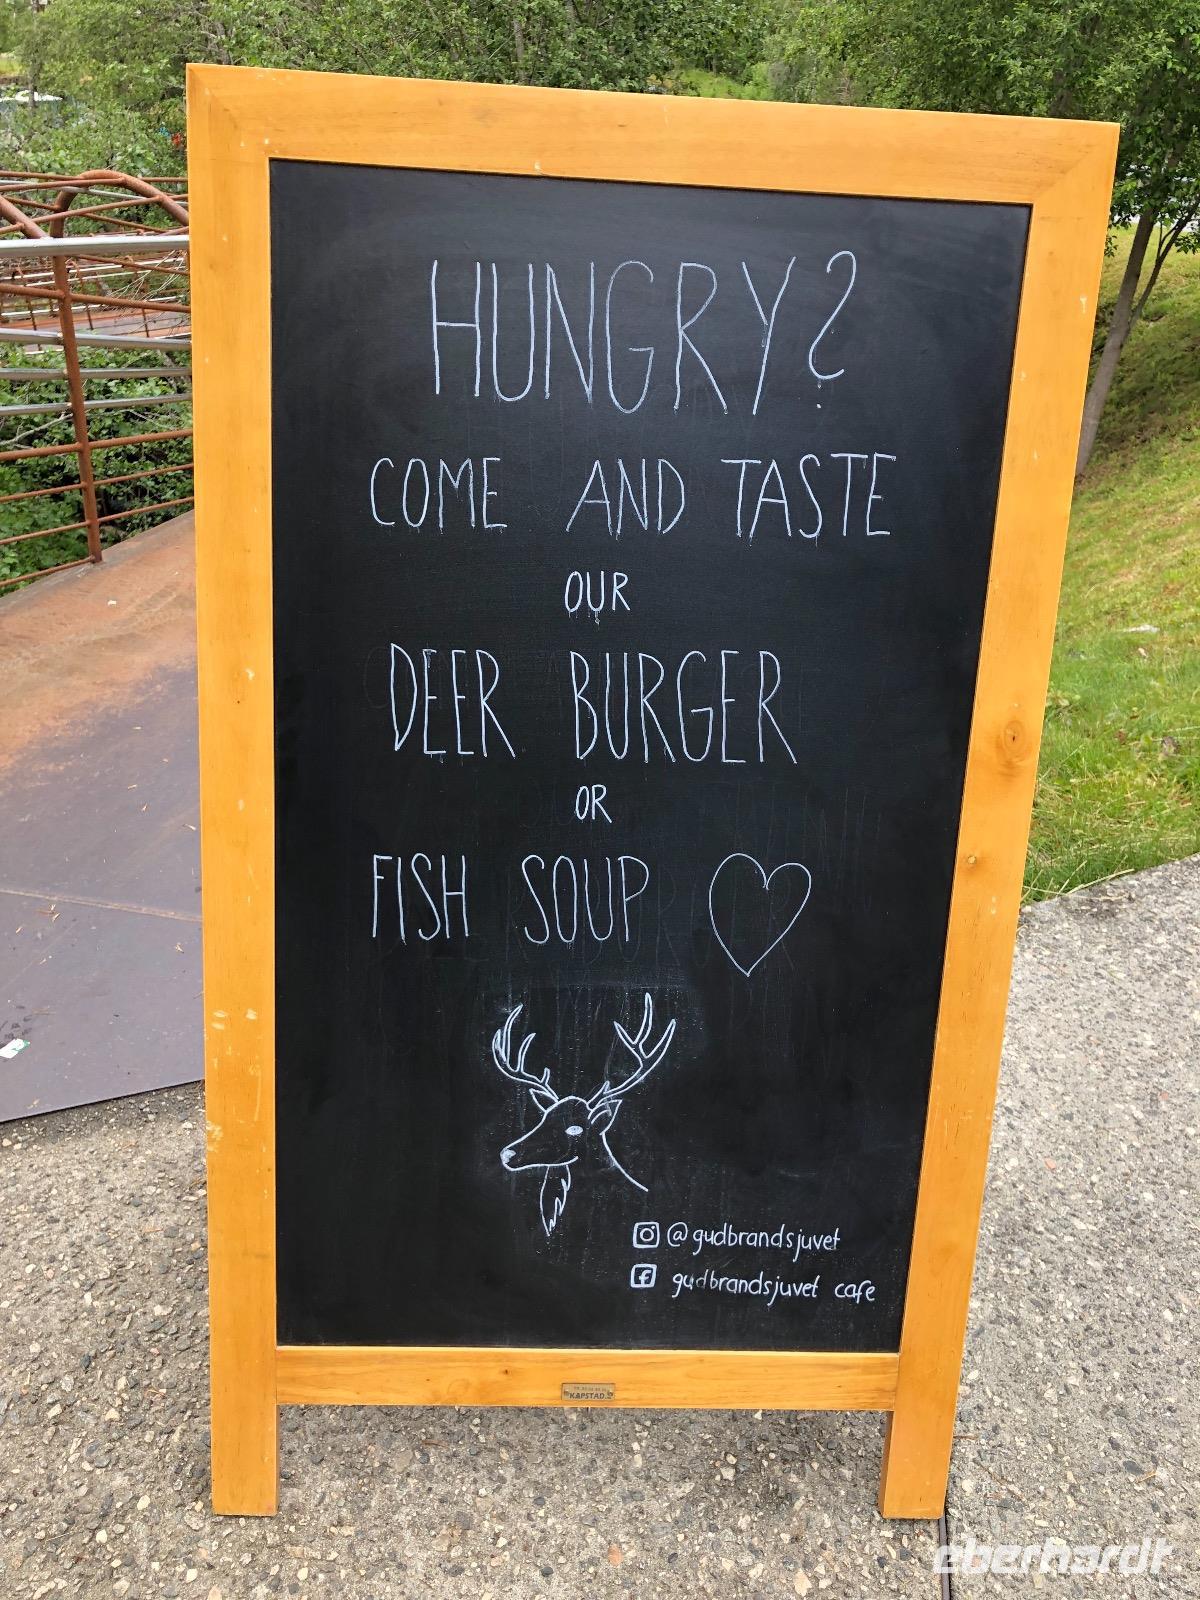 HUNGRY?
COME AND TASTE
OUR
DEER BURGER
OR
FISH SOUP
@gudbrandsjuvet
gudbrandsjuvet cafe
KAPSTAD
eberhardt